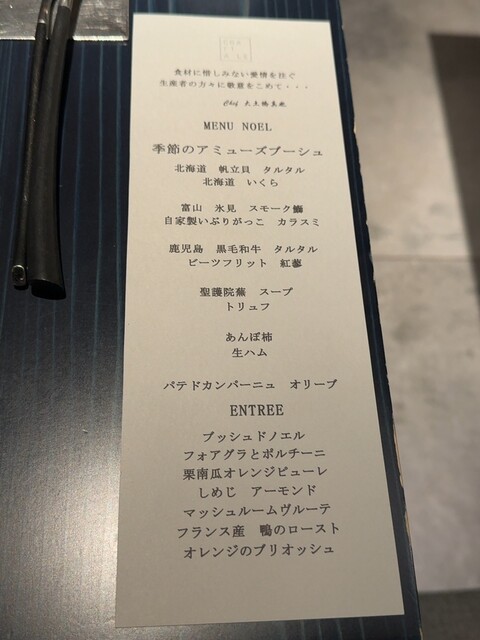 食材に惜しみない愛情を注ぐ
生産者の方々に敬意をこめて・・・
Chef
MENU NOEL
季節のアミューズブーシュ
北海道 帆立貝 タルタル
北海道 いくら
富山 氷見 スモーク鰤
自家製いぶりがっこ カラスミ
鹿児島 黒毛和牛 タルタル
ビーツフリット 紅蓼
聖護院蕪 スープ
トリュフ
あんぽ柿
生ハム
パテドカンパーニュ オリーブ
ENTREE
ブッシュドノエル
フォアグラとポルチーニ
栗南瓜オレンジピューレ
しめじ アーモンド
マッシュルームヴルーテ
フランス産 鴨のロースト
オレンジのブリオッシュ